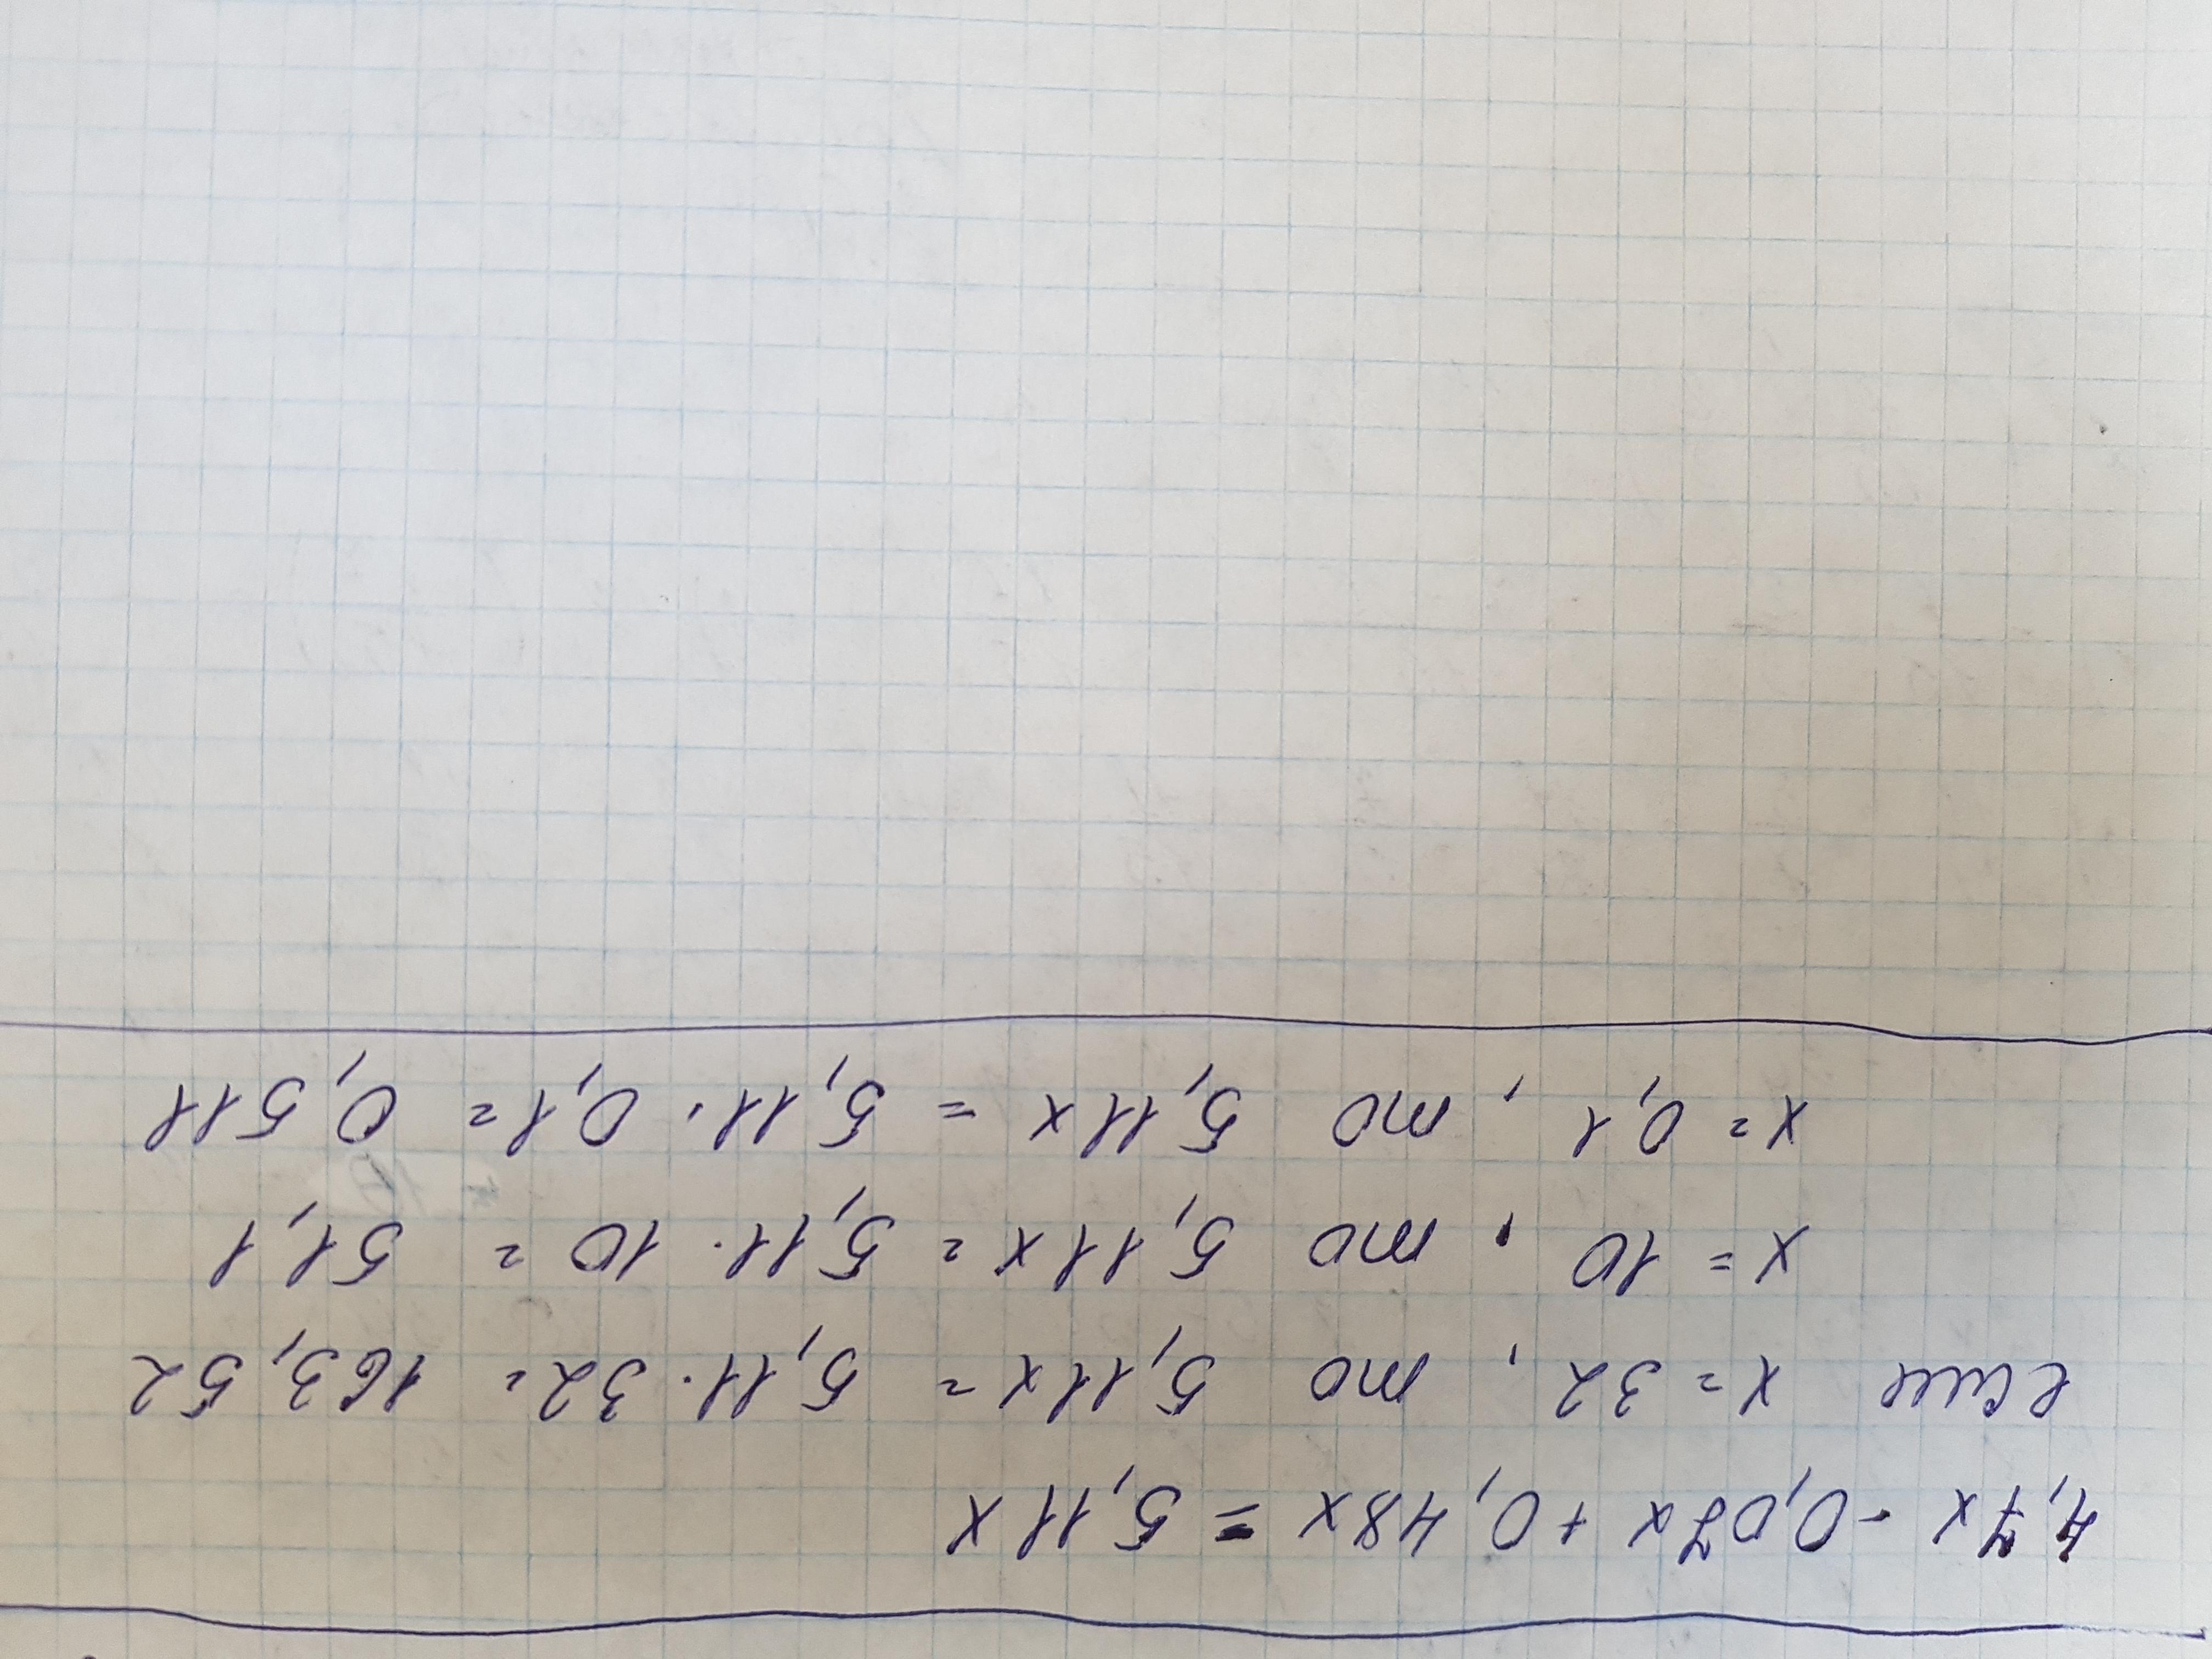 4,7x - 0,07x + 0,48x = 5,11x
если x = 32, то 5,11x = 5,11 · 32 = 163,52
x = 10, то 5,11x = 5,11 · 10 = 51,1
x = 0,1, то 5,11x = 5,11 · 0,1 = 0,511